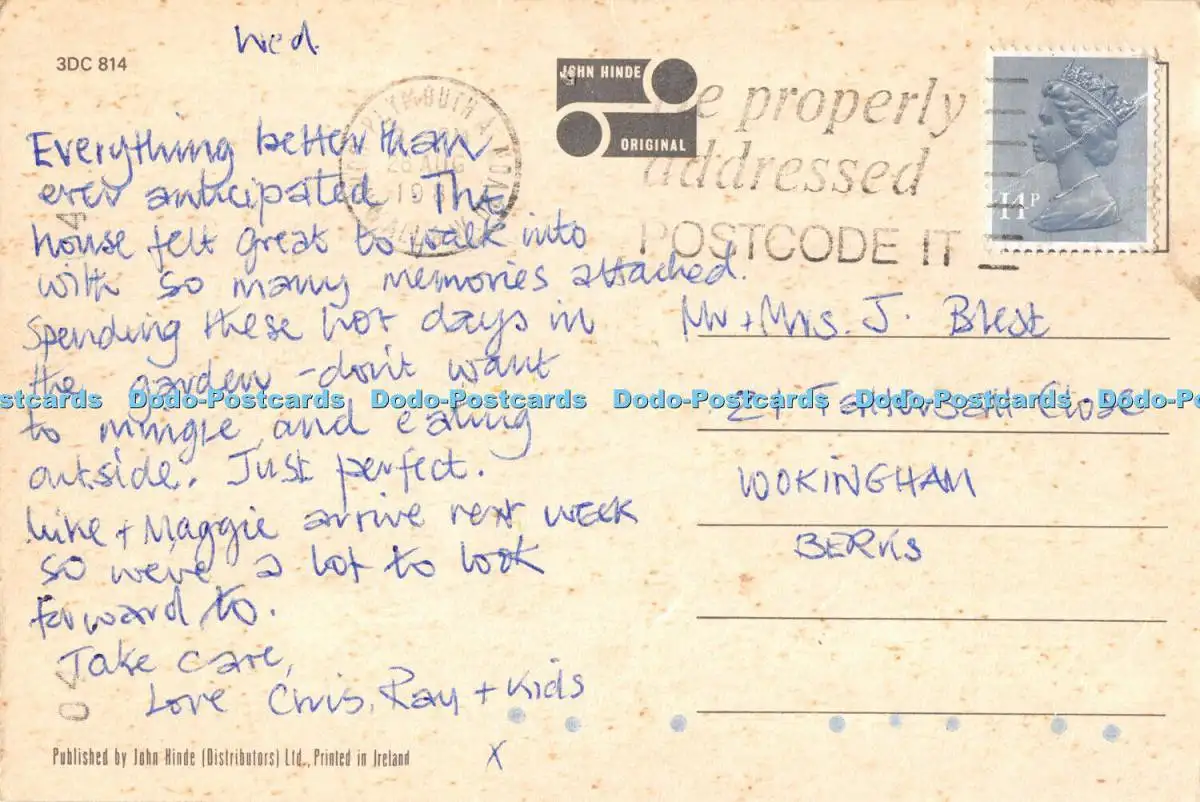 Wed.
3DC 814
JOHN HINDE
ORIGINAL
be properly
addressed
POSTCODE IT
14P
PLYMOUTH
28 AUG
19
Everything better than
ever anticipated. The
house felt great to walk into
with so many memories attached.
Spending these hot days in
the garden - don't want
to mingle and eating
outside. Just perfect.
Luke + Maggie arrive next week
so we've a lot to look
forward to.
Take care,
Love Chris, Ray + Kids
X
Mr + Mrs. J. Blest
21 Close
WOOKINGHAM
BERKS
Dodo-Postcards Dodo-Postcards Dodo-Postcards Dodo-Postcards Dodo-P
Published by John Hinde (Distributors) Ltd., Printed in Ireland